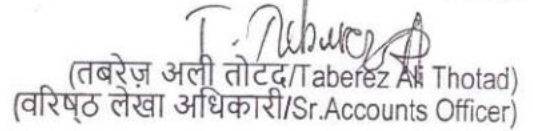 (तबरेज़ अली तोटद/Taberez Ali Thotad)
(वरिष्ठ लेखा अधिकारी/Sr.Accounts Officer)